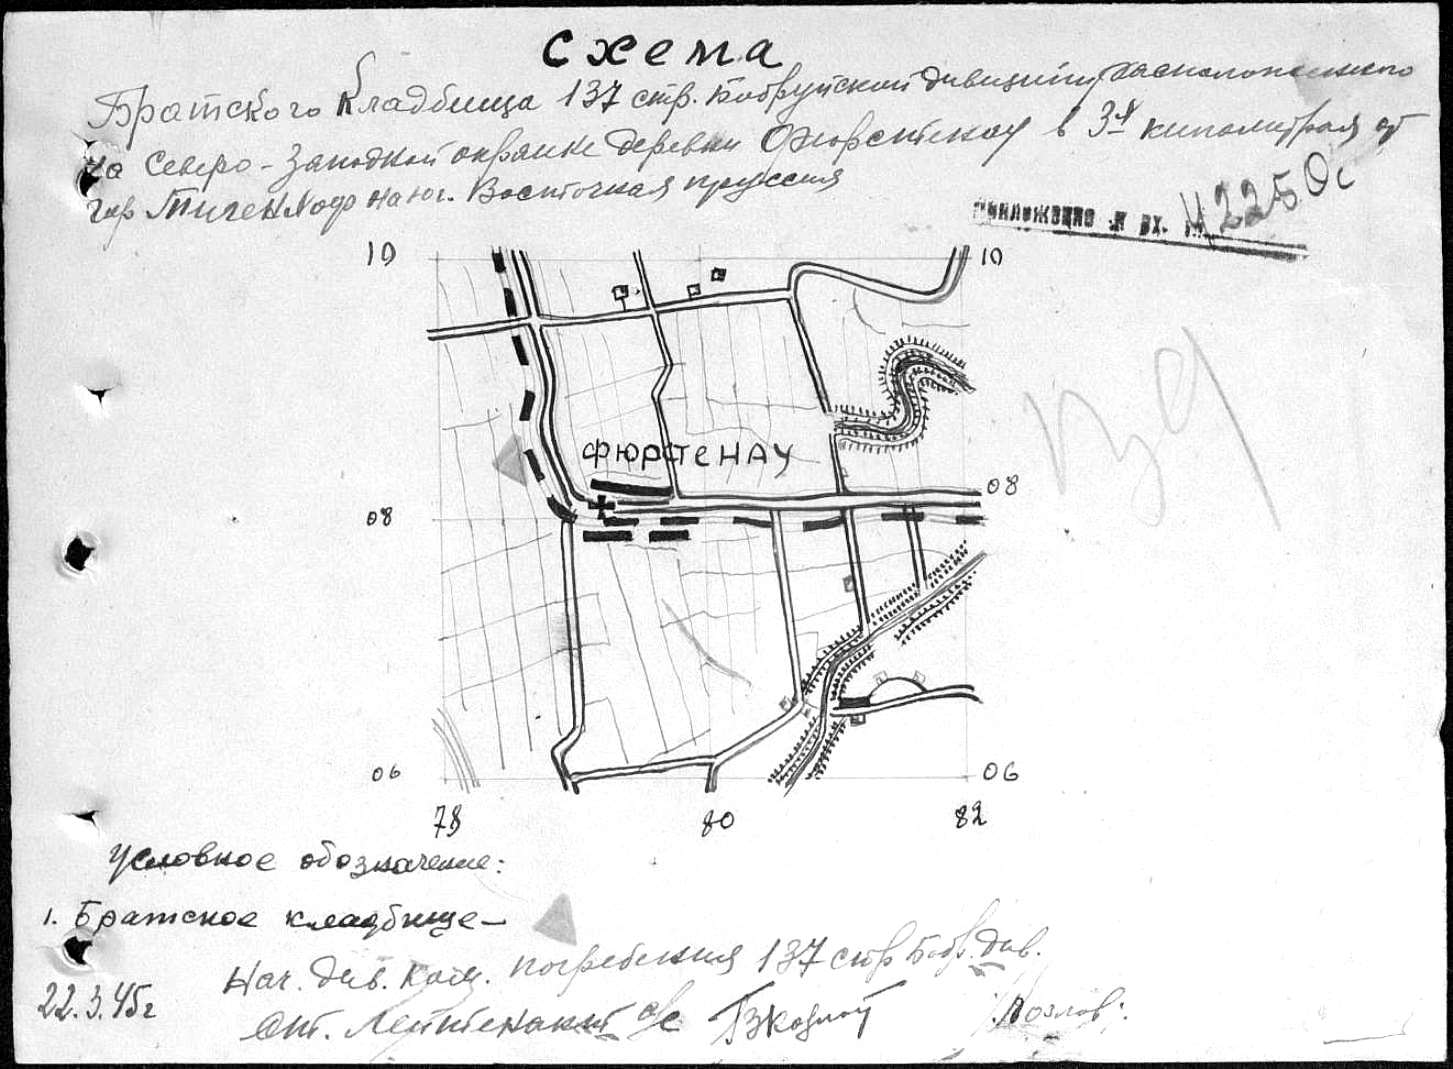 схема
Братского Кладбища 137 стр. Бобруйской дивизии, расположенного
на Северо-Западной окраине деревни Фюрстенау в 3х километрах от
гор Тигенхоф на юг. Восточная пруссия
приложение к вх. №2250с
10 10
ФЮРСТЕНАУ
08
08
06 06
78 80 82
Условное обозначение:
1. Братское кладбище-
Нач. див. ком. погребения 137 стр Бобр. див.
22.3.45г
Ст. Лейтенант а/с /Козлов/.